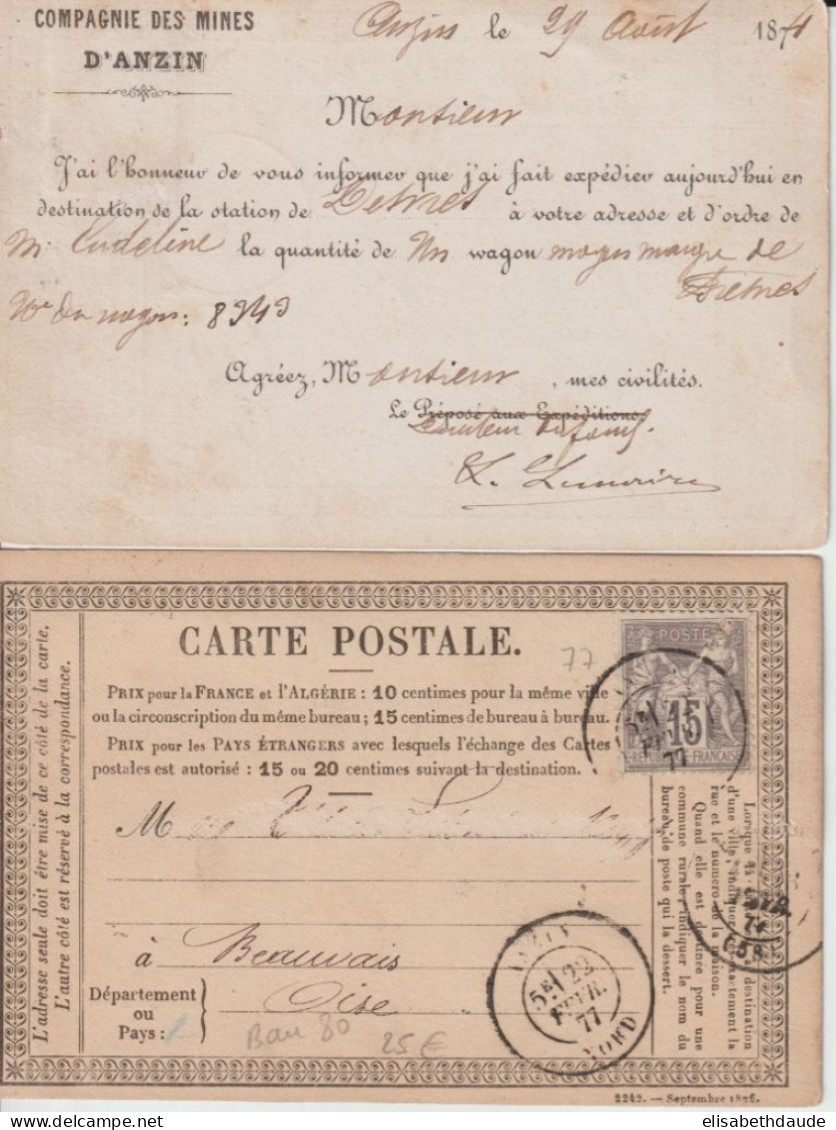 COMPAGNIE DES MINES
D'ANZIN
Anzin le 29 Août 187
Monsieur
J'ai l'honneur de vous informer que j'ai fait expédier aujourd'hui en
destination de la station de à votre adresse et d'ordre de
M. la quantité de Un wagon de
8343
Agréez, Monsieur, mes civilités.
Le Préposé aux Expéditions
CARTE POSTALE.
77
PRIX pour la FRANCE et l'ALGÉRIE : 10 centimes pour la même ville
ou la circonscription du même bureau ; 15 centimes de bureau à bureau.
PRIX pour les PAYS ÉTRANGERS avec lesquels l'échange des Cartes
postales est autorisé : 15 ou 20 centimes suivant la destination.
L'adresse seule doit être mise de ce côté de la carte.
L'autre côté est réservé à la correspondance.
POSTE
15
M
à Beauvais
Département
ou
Pays :
Oise
Bau 80
25 €
5E 22
FEVR.
77
NORD
Lorsque la destination
d'une ville, indiquer exactement la
rue et le numéro de la maison.
Quand elle est destinée pour une
commune rurale, indiquer le nom du
bureau de poste qui la dessert.
2242. — Septembre 1876.
delcampe.net
elisabethdaude